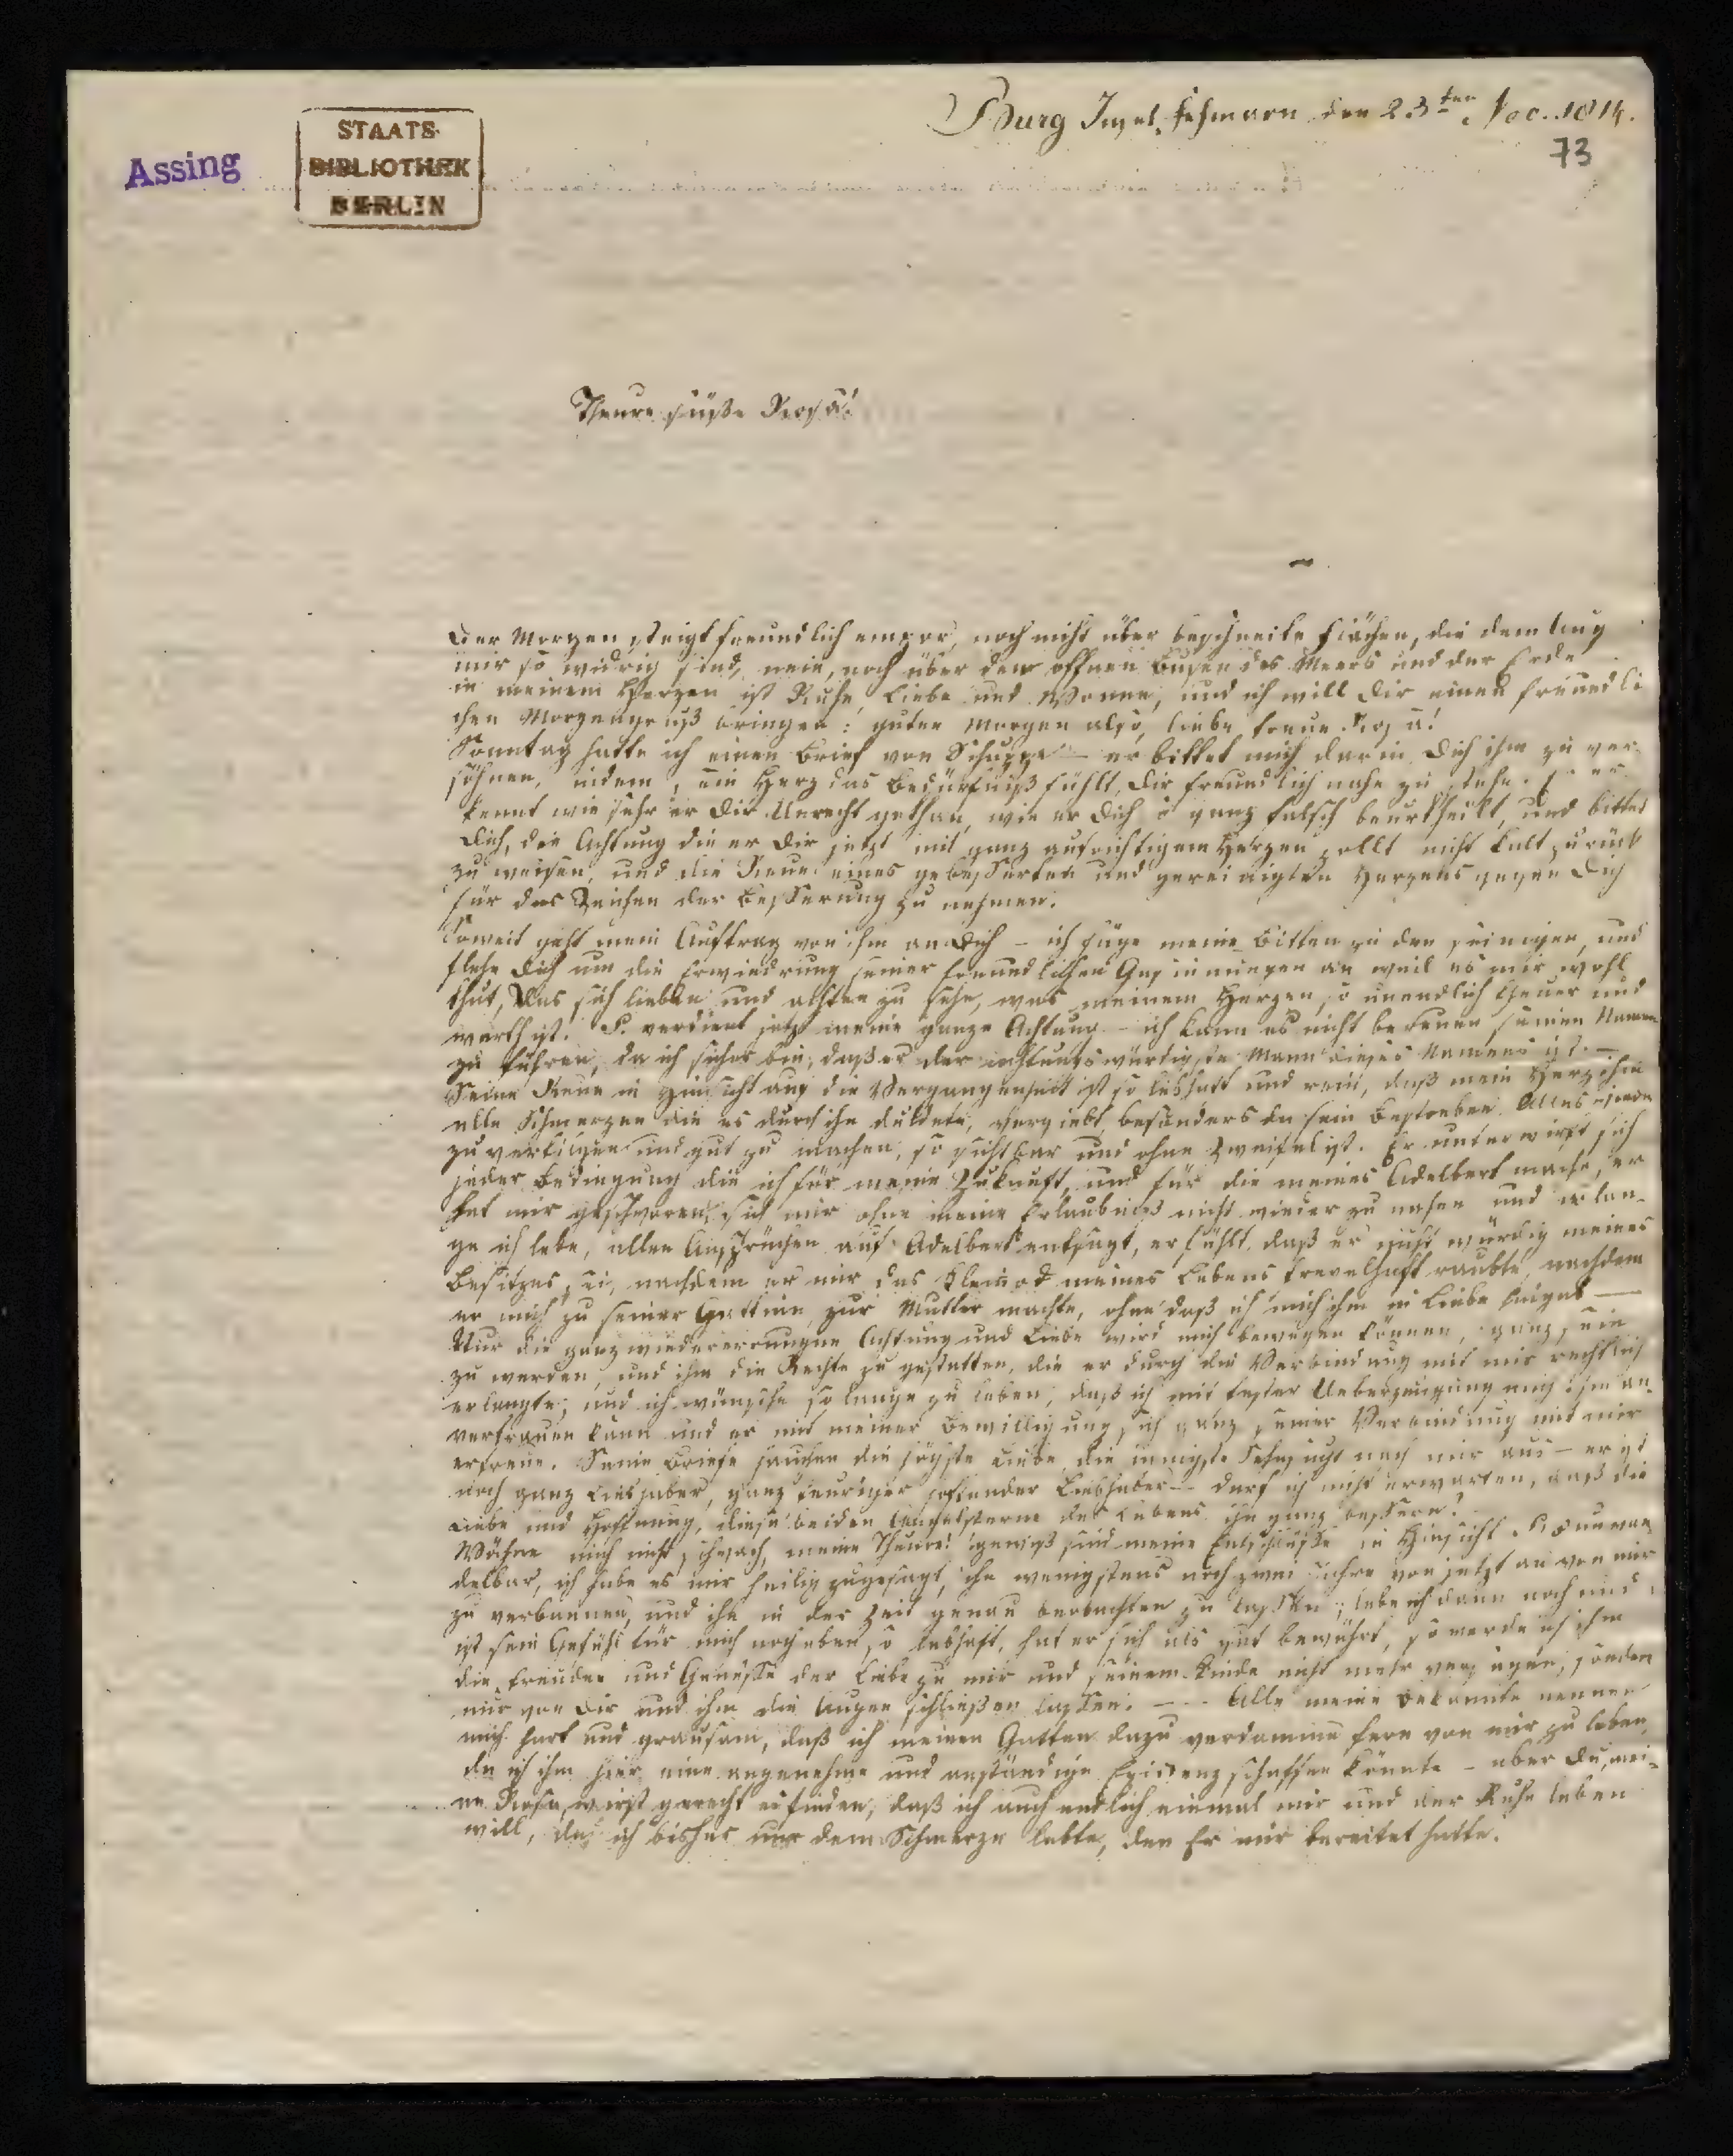 Burg Insel Fehmarn den 23ten Nov. 1814.
73
Assing
STAATS-
BIBLIOTHEK
BERLIN
Theure süße Rosa!
Der Morgen steigt freundlich empor, noch nicht über beschneite Flächen, die dem Aug
mir so widrig sind, nein, noch über dem offnen Busen des Meers und der Erde
in meinem Herzen ist Ruhe, Liebe und Wonne, und ich will Dir einen freundli
chen Morgengruß bringen: guten Morgen also, liebe treue Rosa!
Sonntag hatte ich einen Brief von Schuppe – er bittet mich darin Dich ihm zu ver-
söhnen, indem sein Herz das Bedürfniß fühlt, Dir freundlich nahe zu stehn. er
kennt wie sehr er Dir Unrecht gethan, wie er Dich ganz falsch beurtheilt, und bittet
Dich, die Achtung die er Dir jetzt mit ganz aufrichtigem Herzen zollt nicht kalt zurück
zu weisen, und die Reue eines gebesserten und gereinigten Herzens gegen Dich
für das Zeichen der Besserung zu nehmen.
Soweit geht mein Auftrag von ihm an Dich – ich füge meine Bitten zu den seinigen, und
flehe Dich um die Erwiedrung seiner freundlichen Gesinnungen an weil es mir wohl
thut, das sich lieben und achten zu sehn, was meinem Herzen so unendlich theuer und
werth ist. S. verdient jetzt meine ganze Achtung – ich kann es nicht bereuen seinen Namen
zu führen, da ich sicher bin, daß er der achtungswürdigste Mann dieses Namens ist. –
Seine Reue in Hinsicht auf die Vergangenheit ist so lebhaft und rein, daß mein Herz ihm
alle Schmerzen die es durch ihn duldete, vergiebt, besonders da sein Bestreben Alles wieder
zu vertilgen und gut zu machen, so sichtbar und ohne Zweifel ist. Er unterwirft sich
jeder Bedingung die ich für meine Zukunft, und für die meines Adelbert mache, er
hat mir geschworen, sich mir ohne meine Erlaubniß nicht wieder zu nahen und so lan-
ge ich lebe, allen Ansprüchen auf Adelbert entsagt, er fühlt, daß er nicht würdig meines
Besitzes sei, nachdem er mir das Kleinod meines Lebens frevelhaft raubte, nachdem
er mich zu seiner Gattinn, zur Mutter machte, ohne daß ich mich ihm in Liebe hingab —
Nur die ganz wiedererrungne Achtung und Liebe wird mich bewegen können, ganz sein
zu werden, und ihm die Rechte zu gestatten, die er durch die Verbindung mit mir rechtlich
erlangte; und ich wünsche so lange zu leben, daß ich mit fester Ueberzeugung mich ihm an-
vertrauen kann und er mit meiner Bewilligung sich ganz seiner Verbindung mit mir
erfreue. Seine Briefe hauchen die höchste Liebe, die innigste Sehnsucht nach mir aus – er ist
noch ganz Liebhaber, ganz feuriger hoffender Liebhaber – darf ich nicht erwarten, daß die
Liebe und Hoffnung, diese beiden Angelsterne des Lebens ihn ganz bessern?
Wähne mich nicht schwach, meine Theure! gewiß sind meine Entschlüsse in Hinsicht S. unwan
delbar, ich habe es mir heilig zugesagt, ihn wenigstens noch zwei Jahre von jetzt an von mir
zu verbannen, und ihn in der Zeit genau beobachten zu lassen; lebe ich dann noch und
ist sein Gefühl für mich noch eben so lebhaft, hat er sich als gut bewährt, so werde ich ihm
die Freuden und Genüsse der Liebe zu mir und seinem Kinde nicht mehr versagen, sondern
mir von Dir und ihm die Augen schließen lassen. — Alle meine Bekannte nennen
mich hart und grausam, daß ich meinen Gatten dazu verdamme fern von mir zu leben,
da ich ihm hier eine angenehme und anständige Existenz schaffen könnte – aber Du, mei-
ne Rosa, wirst gerecht es finden, daß ich auch endlich einmal mir und der Ruhe leben
will, da ich bisher nur dem Schmerze lebte, den Er mir bereitet hatte.